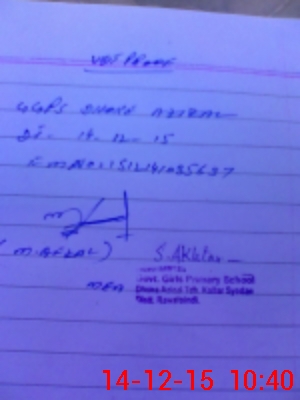 VST PROOF
GGPS DHOKE AZIZAL
DT. 14-12-15
( M.AFZAL )
S.Akhtar
MEA
Govt. Girls Primary School
Dhoke Azizal Teh. Kallar Syedan
Distt. Rawalpindi.
14-12-15 10:40